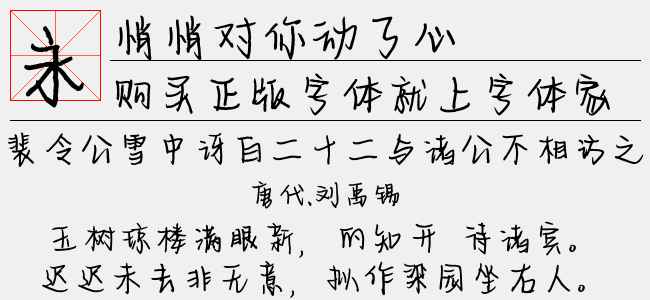 永
悄悄对你动了心
购买正版字体就上字体家
裴令公雪中讶白二十二与诸公不相访之
唐代.刘禹锡
玉树琼楼满眼新, 的知开 待诸宾。
迟迟未去非无意, 拟作梁园坐右人。